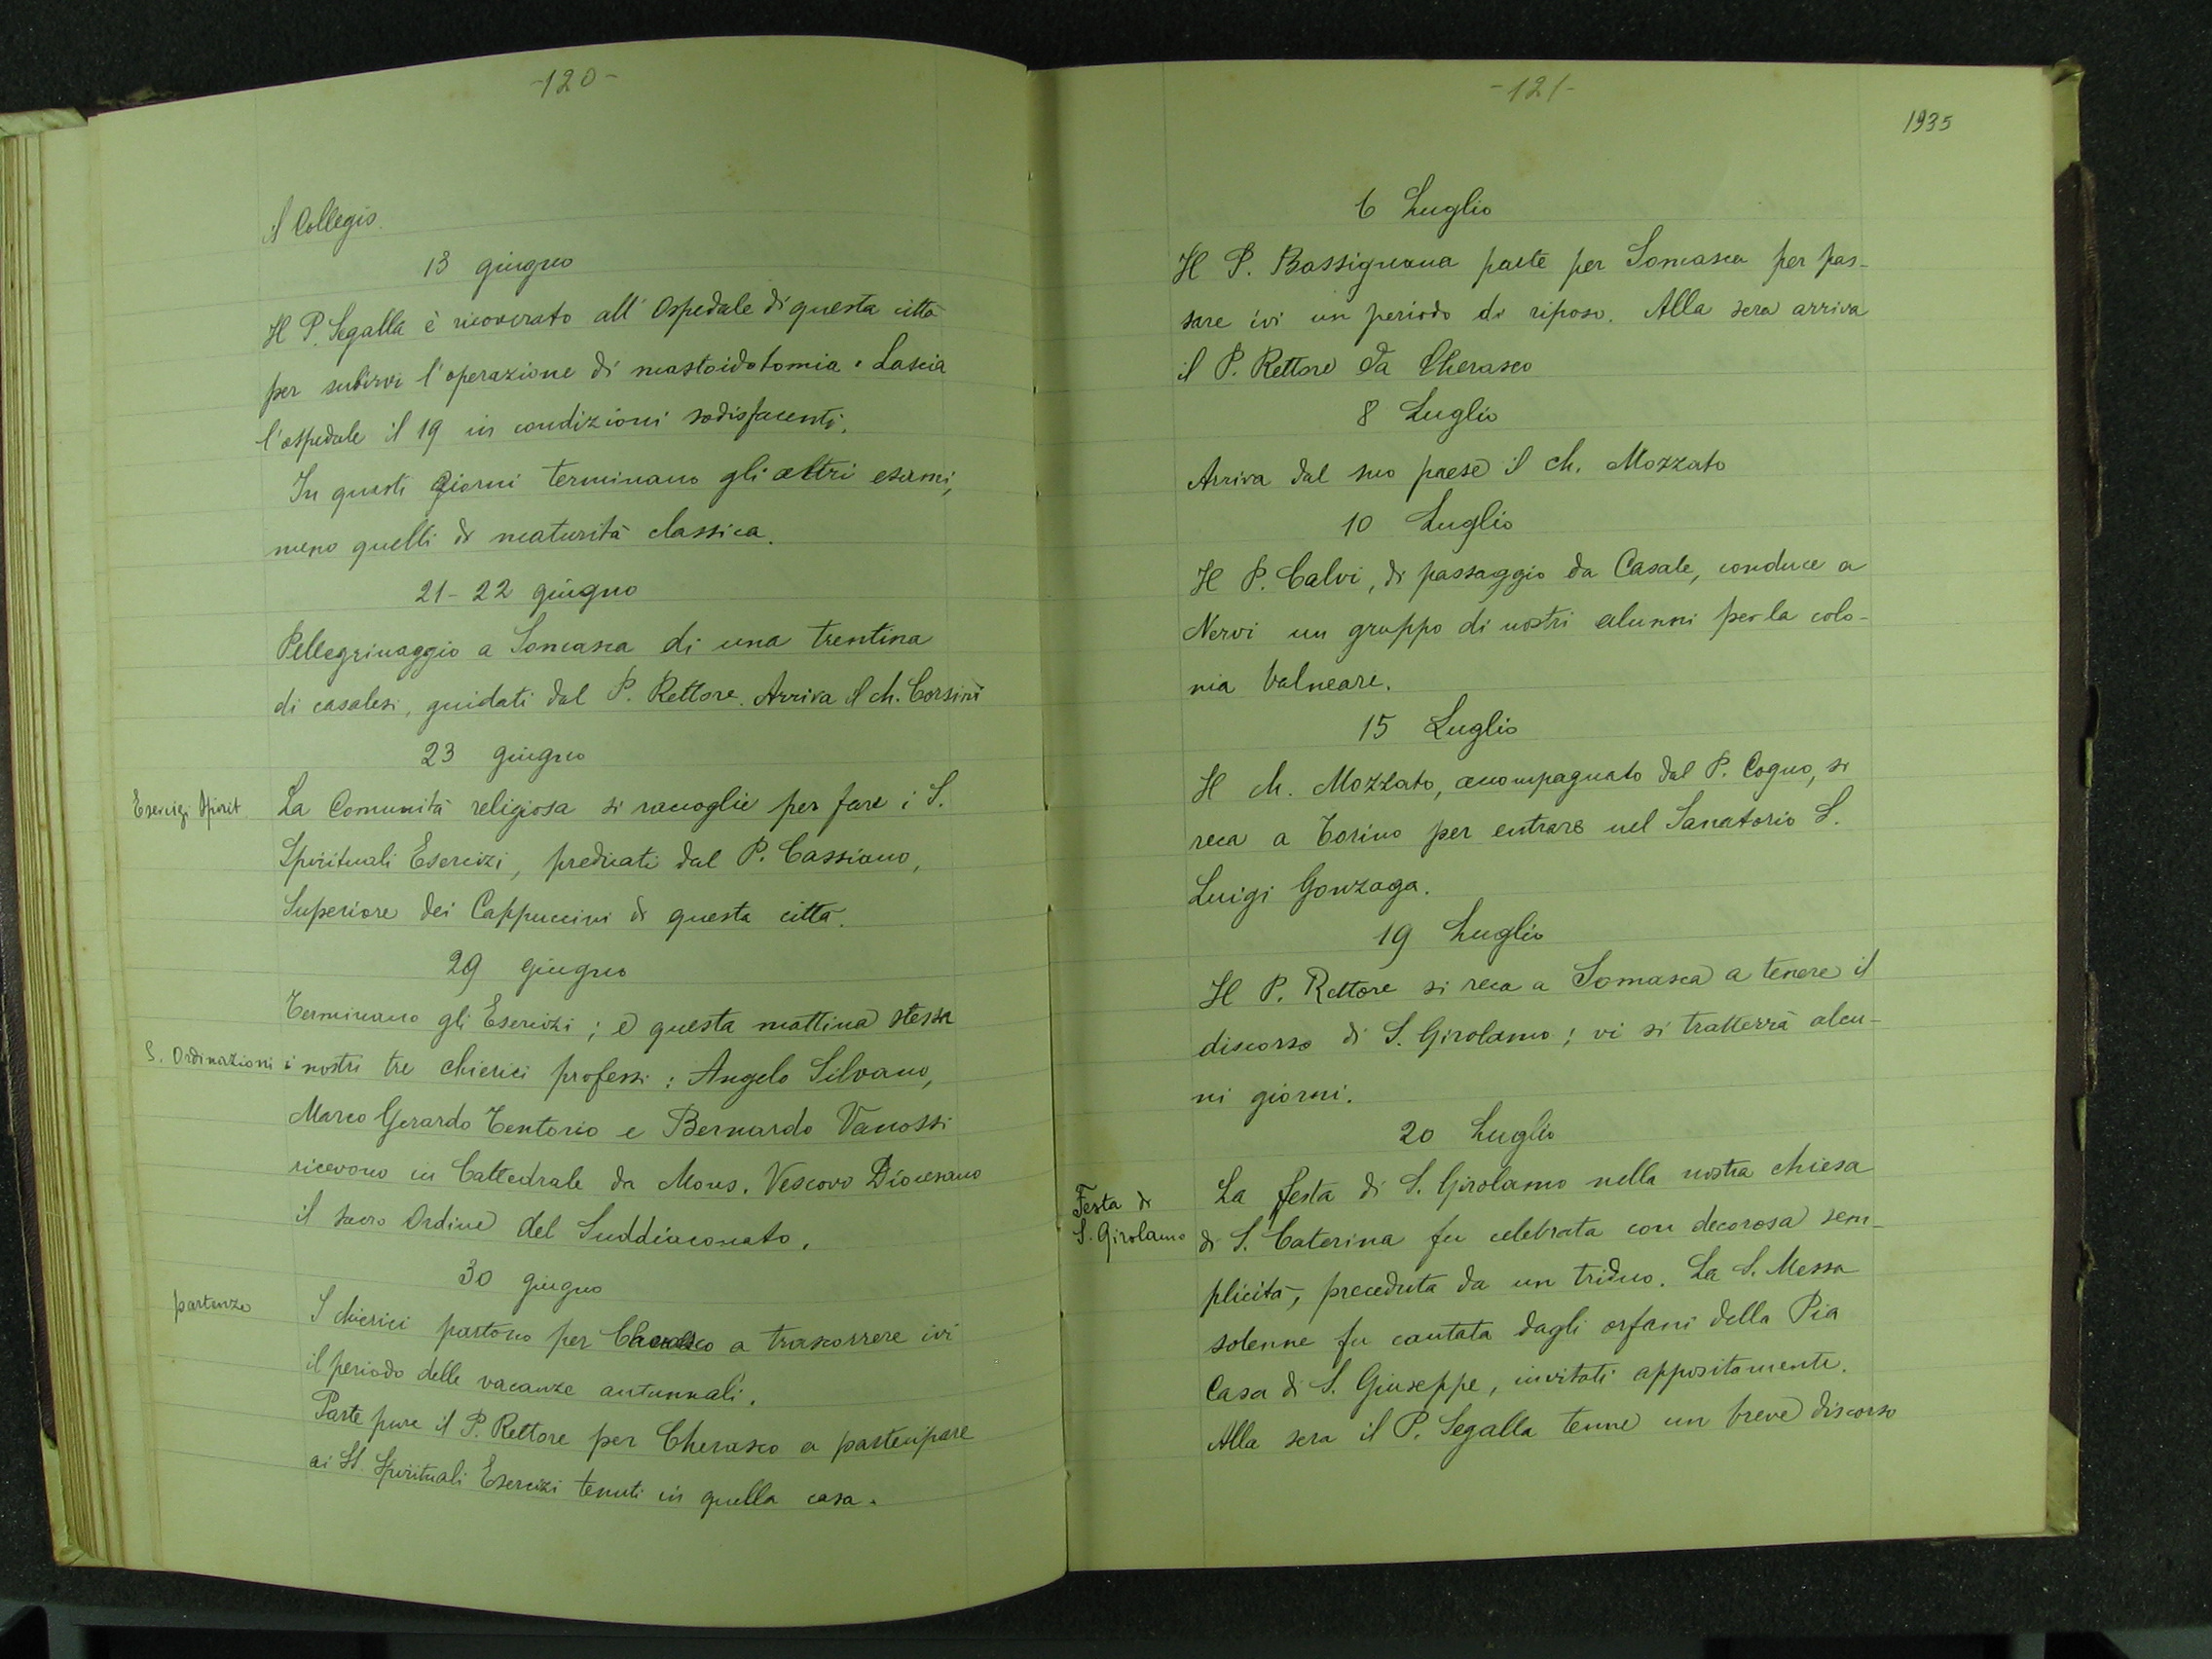 -120-
il Collegio.
13 giugno
Il P. Segalla è ricoverato all'Ospedale di questa città
per subirvi l'operazione di mastoidotomia. Lascia
l'ospedale il 19 in condizioni sodisfacenti.
In questi giorni terminano gli altri esami,
meno quelli di maturità classica.
21-22 giugno
Pellegrinaggio a Somasca di una trentina
di casalesi, guidati dal P. Rettore. Arriva il ch. Corsini
23 giugno
Esercizi Spirit.
La Comunità religiosa si raccoglie per fare i S.
Spirituali Esercizi, predicati dal P. Cassiano,
Superiore dei Cappuccini di questa città.
29 giugno
Terminano gli Esercizi; e questa mattina stessa
S. Ordinazioni
i nostri tre chierici professi: Angelo Silvano,
Marco Gerardo Tentorio e Bernardo Vanossi
ricevono in Cattedrale da Mons. Vescovo Diocesano
il sacro Ordine del Suddiaconato.
30 giugno
partenze
I chierici partono per Cherasco a trascorrere ivi
il periodo delle vacanze autunnali.
Parte pure il P. Rettore per Cherasco a partecipare
ai SS. Spirituali Esercizi tenuti in quella casa.
-121-
1935
6 Luglio
Il P. Bassignana parte per Somasca per pas-
sare ivi un periodo di riposo. Alla sera arriva
il P. Rettore da Cherasco
8 Luglio
Arriva dal suo paese il ch. Mozzato
10 Luglio
Il P. Calvi, di passaggio da Casale, conduce a
Nervi un gruppo di nostri alunni per la colo-
nia balneare.
15 Luglio
Il ch. Mozzato, accompagnato dal P. Cogno, si
reca a Torino per entrare nel Sanatorio S.
Luigi Gonzaga.
19 Luglio
Il P. Rettore si reca a Somasca a tenere il
discorso di S. Girolamo; vi si tratterrà alcu-
ni giorni.
20 Luglio
Festa di
S. Girolamo
La festa di S. Girolamo nella nostra chiesa
di S. Caterina fu celebrata con decorosa sem-
plicità, preceduta da un triduo. La S. Messa
solenne fu cantata dagli orfani della Pia
Casa di S. Giuseppe, invitati appositamente.
Alla sera il P. Segalla tenne un breve discorso